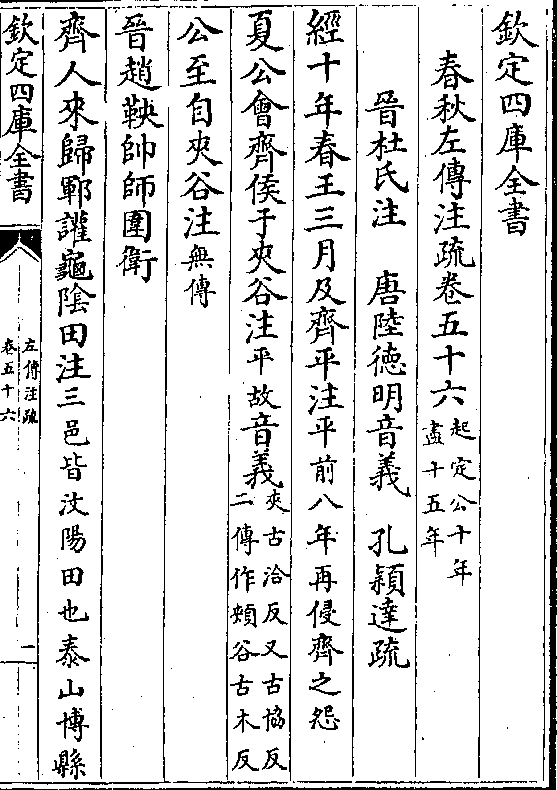 欽定四庫全書
春秋左傳注疏卷五十六起定公十年
盡十五年
晉杜氏注 唐陸德明音義 孔穎達疏
經十年春王三月及齊平注平前八年再侵齊之怨
夏公會齊侯于夾谷注平故音義夾古洽反又古協反
二傳作頰谷古木反
公至自夾谷注無傳
晉趙鞅帥師圍衛
齊人來歸鄆讙龜陰田注三邑皆汶陽田也泰山博縣
欽定四庫全書
左傳注疏
卷五十六
一